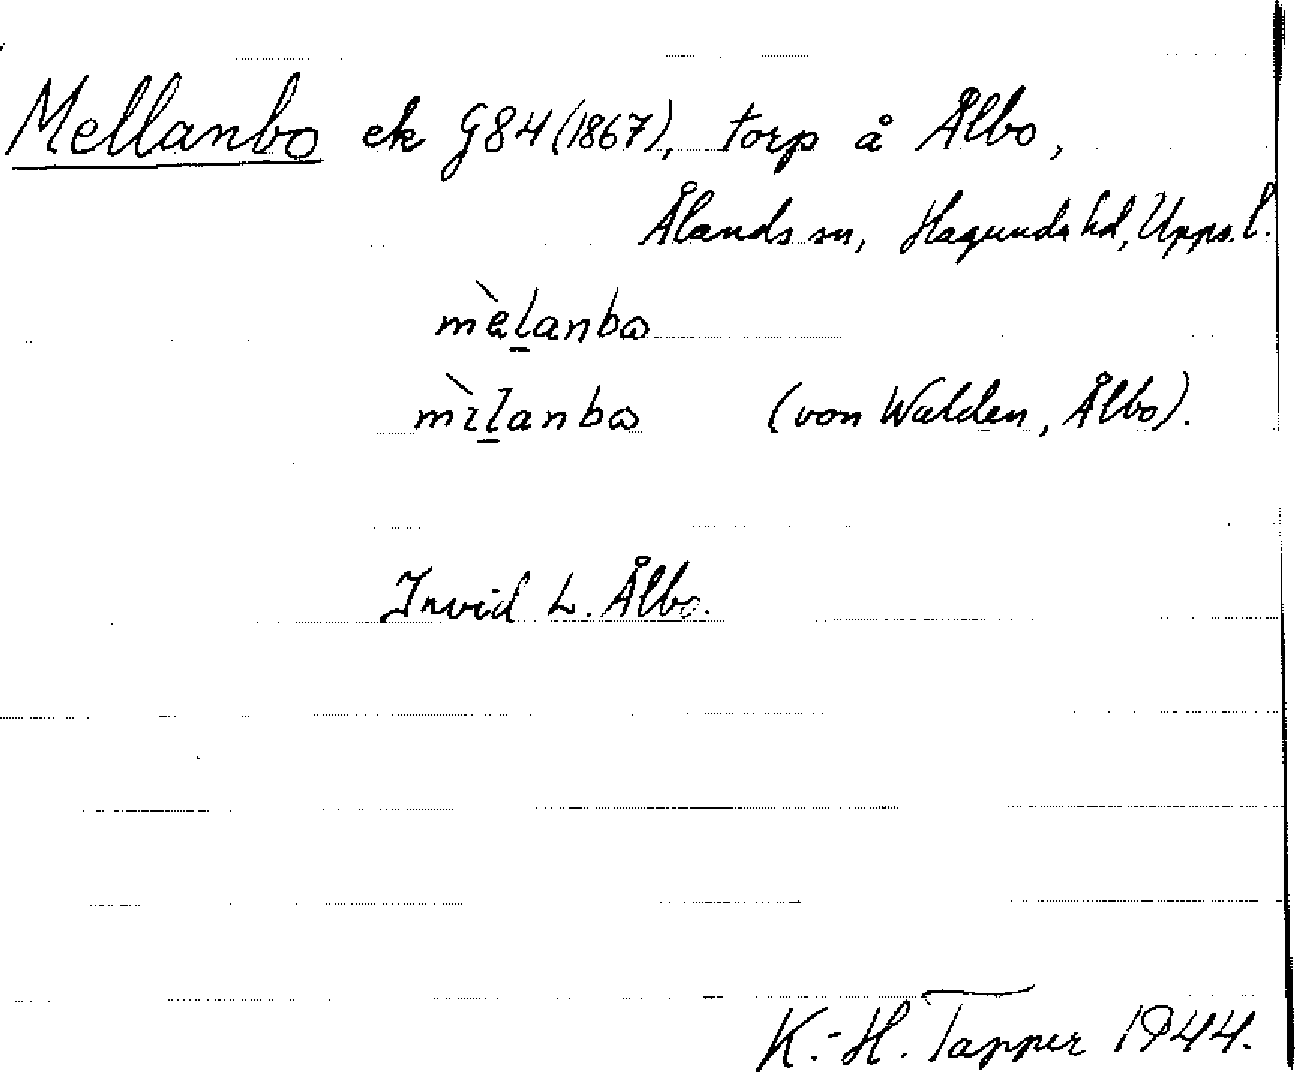 Mellanbo ek G84 (1867), torp å Ålbo,
Ålands sn, Hagunda hd, Upps. l.
mèl̲anbω
mìl̲anbω (von Walden, Ålbo).
Invid L. Ålbo.
K.-H. Tapper 1944.